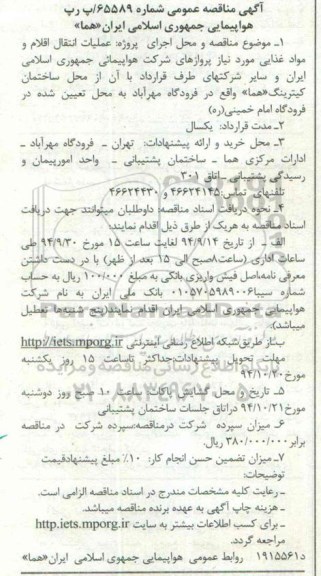 آگهی مناقصه عمومی شماره ۶۵۵۸۹/پ رپ
هواپیمایی جمهوری اسلامی ایران«هما»
۱ـ موضوع مناقصه و محل اجرای پروژه: عملیات انتقال اقلام و
مواد غذایی مورد نیاز پروازهای شرکت هواپیمائی جمهوری اسلامی
ایران و سایر شرکتهای طرف قرارداد با آن از محل ساختمان
کیترینگ«هما» واقع در فرودگاه مهرآباد به محل تعیین شده در
فرودگاه امام خمینی(ره)
۲ـ مدت قرارداد: یکسال
۳ـ محل خرید و ارائه پیشنهادات: تهران ـ فرودگاه مهرآباد ـ
ادارات مرکزی هما ـ ساختمان پشتیبانی ـ واحد امورپیمان و
رسیدگی پشتیبانی ـ اتاق ۳۰۱
تلفنهای تماس: ۴۶۶۲۴۱۴۵ و ۴۶۶۲۴۴۳۰
۴ـ نحوه دریافت اسناد مناقصه: داوطلبان میتوانند جهت دریافت
اسناد مناقصه به هریک از طرق ذیل اقدام نمایند:
الف ـ از تاریخ ۹۴/۹/۱۴ لغایت ساعت ۱۵ مورخ ۹۴/۹/۳۰ طی
ساعات اداری (ساعت ۸صبح الی ۱۵ بعد از ظهر) با در دست داشتن
معرفی نامه،اصل فیش واریزی بانکی به مبلغ ۱۰۰/۰۰۰ ریال به حساب
شماره سیبا ۰۱۰۵۷۰۵۹۸۹۰۰۶ بانک ملی ایران به نام شرکت
هواپیمایی جمهوری اسلامی ایران اقدام نمایند(پنج شنبه‌ها تعطیل
میباشد).
ب: از طریق شبکه اطلاع رسانی اینترنتی http://iets.mporg.ir
مهلت تحویل پیشنهادات:حداکثر تاساعت ۱۵ روز یکشنبه
مورخ ۹۴/۱۰/۲۰
۵ـ تاریخ و محل گشایش پاکات: ساعت ۱۰ صبح روز دوشنبه
مورخ ۹۴/۱۰/۲۱ دراتاق جلسات ساختمان پشتیبانی
۶ـ میزان سپرده شرکت درمناقصه:سپرده شرکت در مناقصه
برابر ۳۸۰/۰۰۰/۰۰۰ ریال.
۷ـ میزان تضمین حسن انجام کار: ۱۰٪ مبلغ پیشنهادقیمت
توضیحات:
ـ رعایت کلیه مشخصات مندرج در اسناد مناقصه الزامی است.
ـ هزینه چاپ آگهی به عهده برنده مناقصه میباشد.
ـ برای کسب اطلاعات بیشتر به سایت http.iets.mporg.ir
مراجعه گردد.
د۱۹۱۵۵۶۱ روابط عمومی هواپیمایی جمهوی اسلامی ایران«هما»